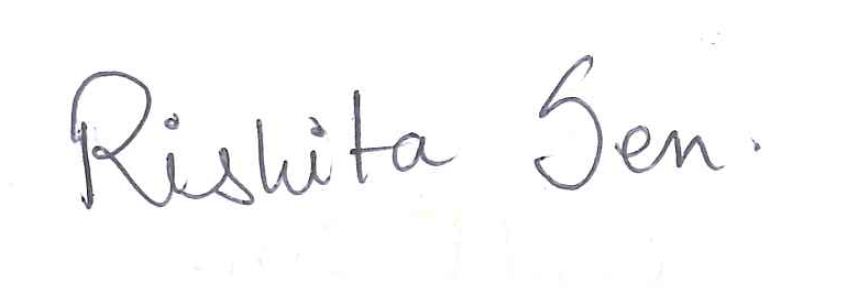 Rishita Sen.